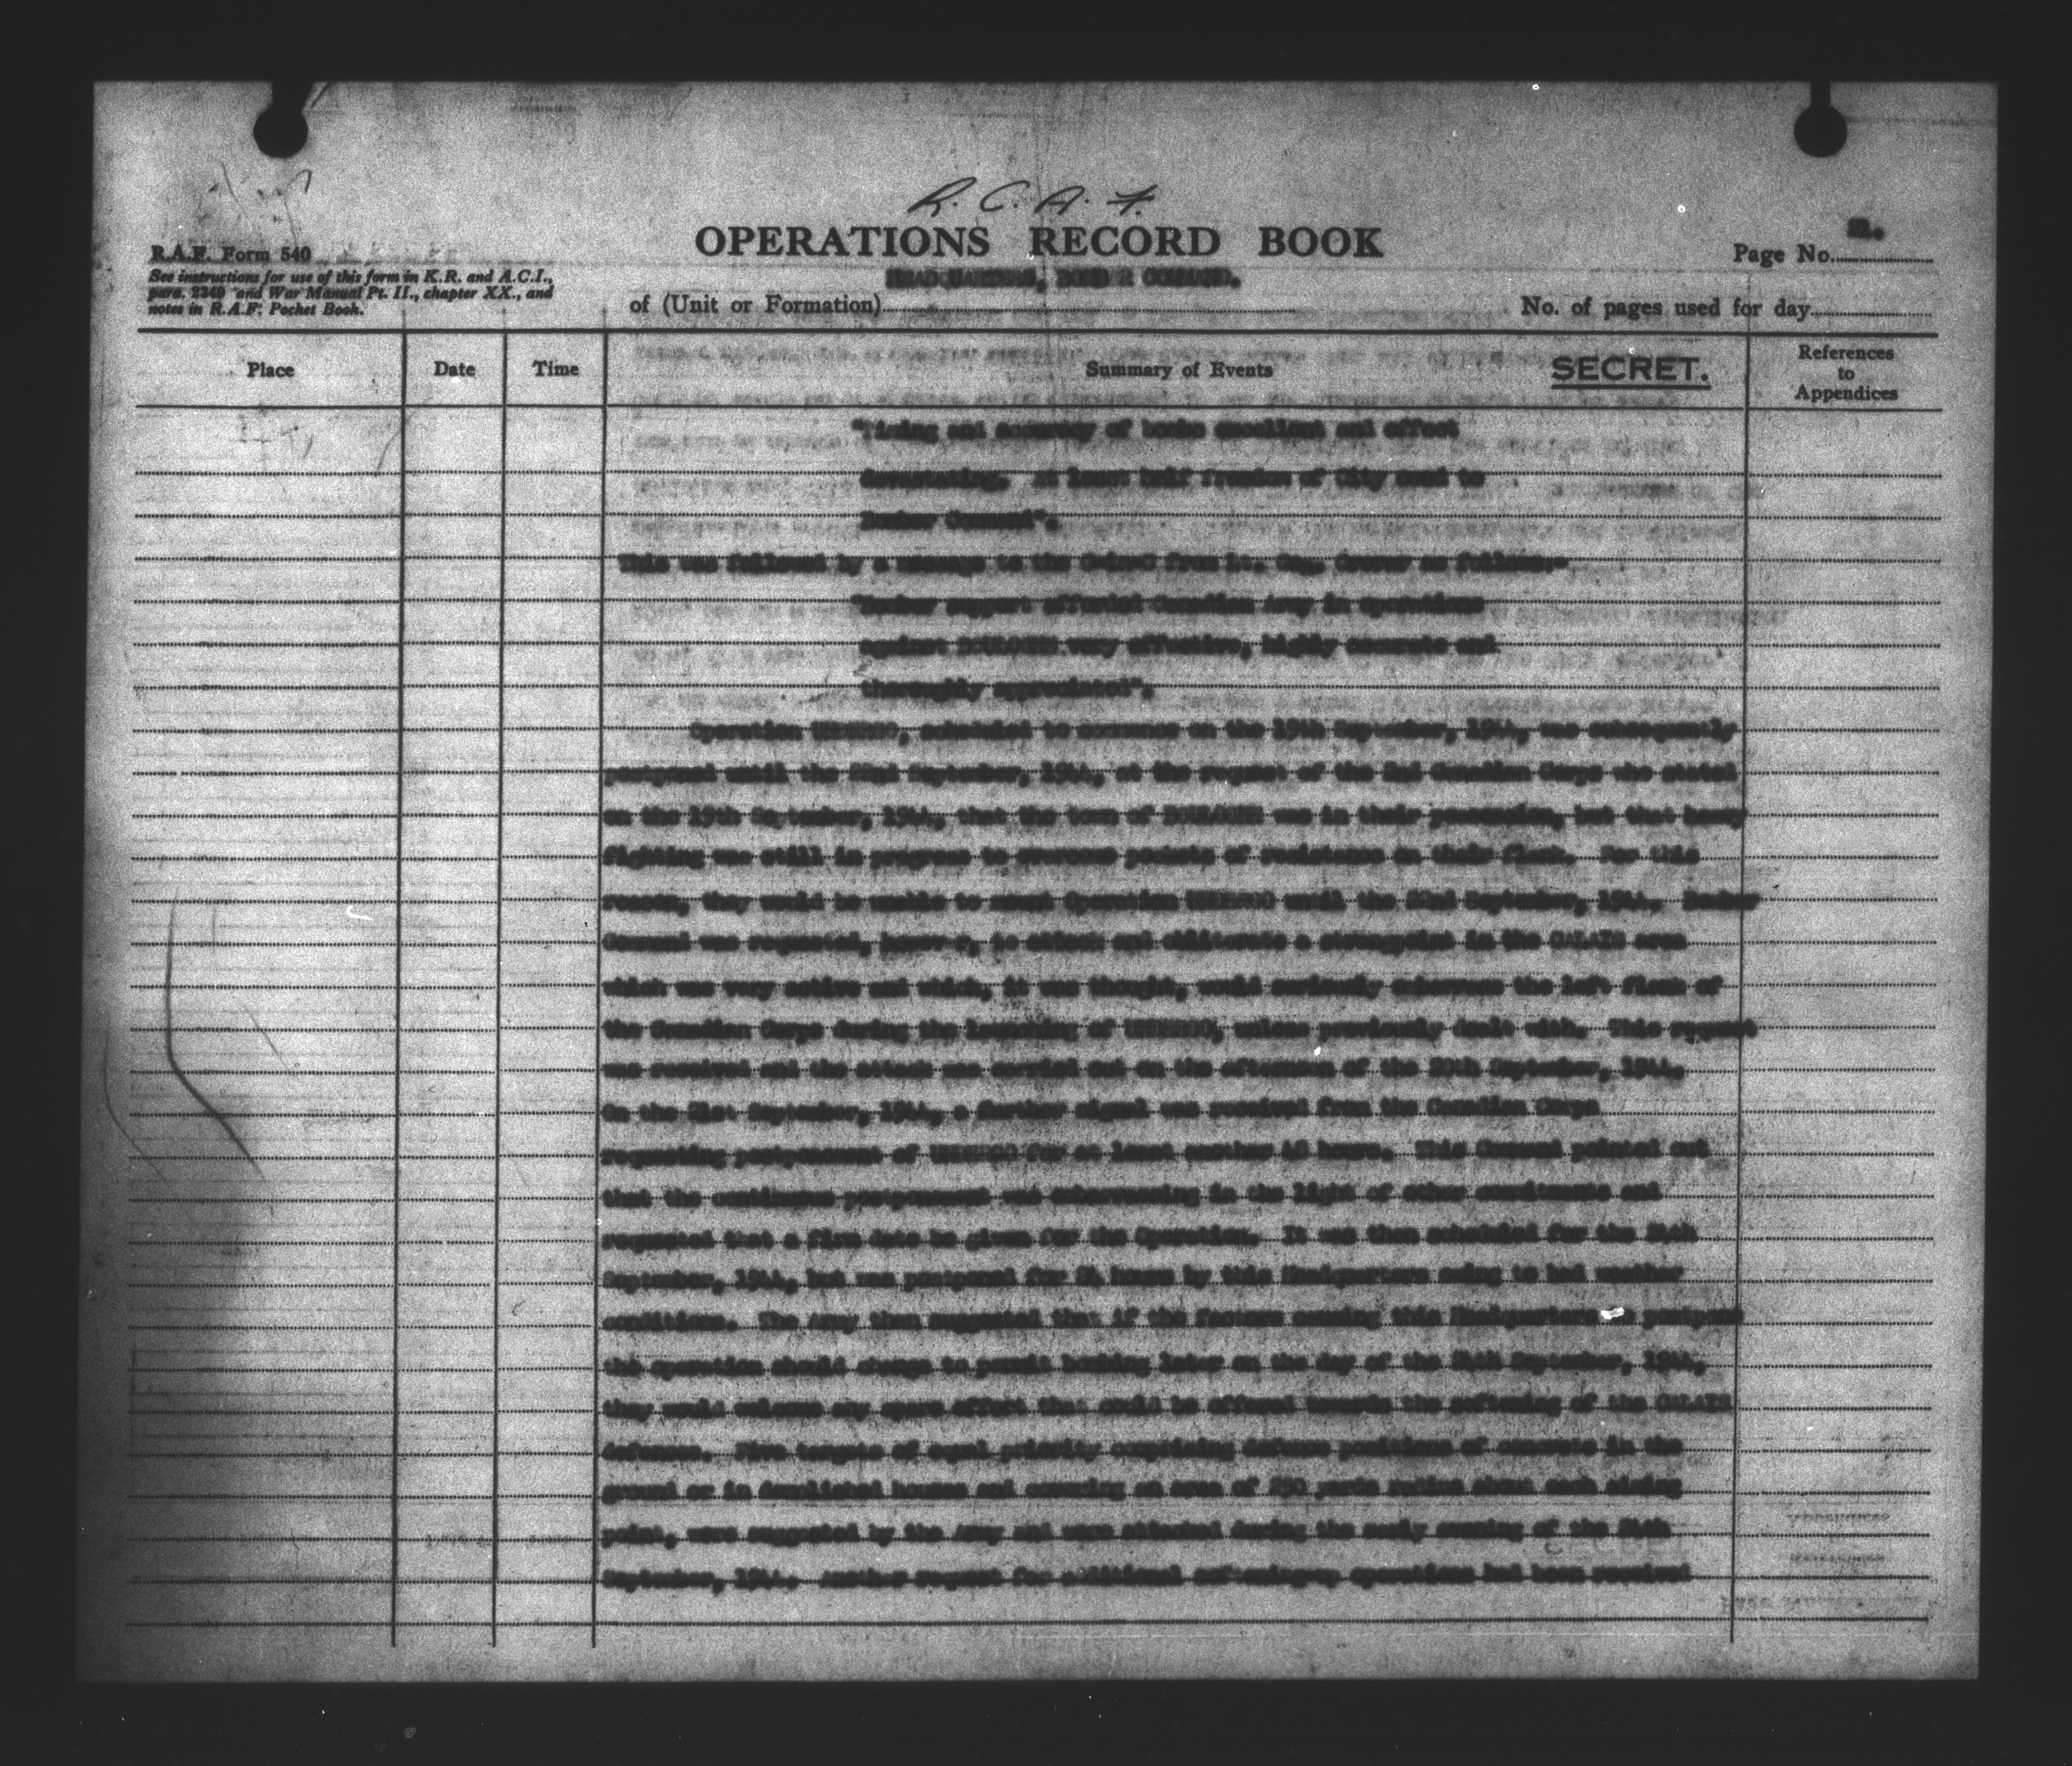 R. C. A. F.
OPERATIONS RECORD BOOK
Page No. 21.
R.A.F. Form 540
See instructions for use of this form in K.R. and A.C.I.,
para. 2349 and War Manual Pt. II., chapter XX., and
notes in R.A.F. Pocket Book.
HEADQUARTERS, BOMBER COMMAND.
of (Unit or Formation)
No. of pages used for day
Place
Date
Time
Summary of Events
SECRET.
References
to
Appendices
"Timing and accuracy of bombs excellent and effect
devastating. At least half freedom of City owed to
Bomber Command".
This was followed by a message to the C-in-C from Lt. Gen. Crerar as follows:-
"Bomber support afforded Canadian Army in operations
against BOULOGNE very effective, highly accurate and
thoroughly appreciated".
Operation UNDERGO, scheduled to commence on the 19th September, 1944, was subsequently
postponed until the 22nd September, 1944, at the request of the 2nd Canadian Corps who stated
on the 19th September, 1944, that the town of BOULOGNE was in their possession, but that heavy
fighting was still in progress to overcome pockets of resistance on their flank. For this
reason, they would be unable to mount Operation UNDERGO until the 22nd September, 1944. Bomber
Command was requested, however, to attack and obliterate a strongpoint in the CALAIS area
which was very active and which, it was thought, would seriously embarrass the left flank of
the Canadian Corps during the launching of UNDERGO, unless previously dealt with. This request
was received and the attack was carried out on the afternoon of the 20th September, 1944.
On the 21st September, 1944, a further signal was received from the Canadian Corps
requesting postponement of UNDERGO for at least another 48 hours. This Command pointed out
that the continuous postponement was embarrassing in the light of other commitments and
requested that a firm date be given for the Operation. It was then scheduled for the 24th
September, 1944, but was postponed for 24 hours by this Headquarters owing to bad weather
conditions. The Army then suggested that if the factors causing this Headquarters postpone
the operation should change to permit bombing later on the day of the 24th September, 1944,
they would welcome any spare effort that could be offered towards the softening of the CALAIS
defences. Five targets of equal priority comprising defence positions of concrete in the
ground or in demolished houses and covering an area of 250 yards radius about each aiming
point, were suggested by the Army and were attacked during the early evening of the 24th
September, 1944. Another request for additional softening-up operations had been received